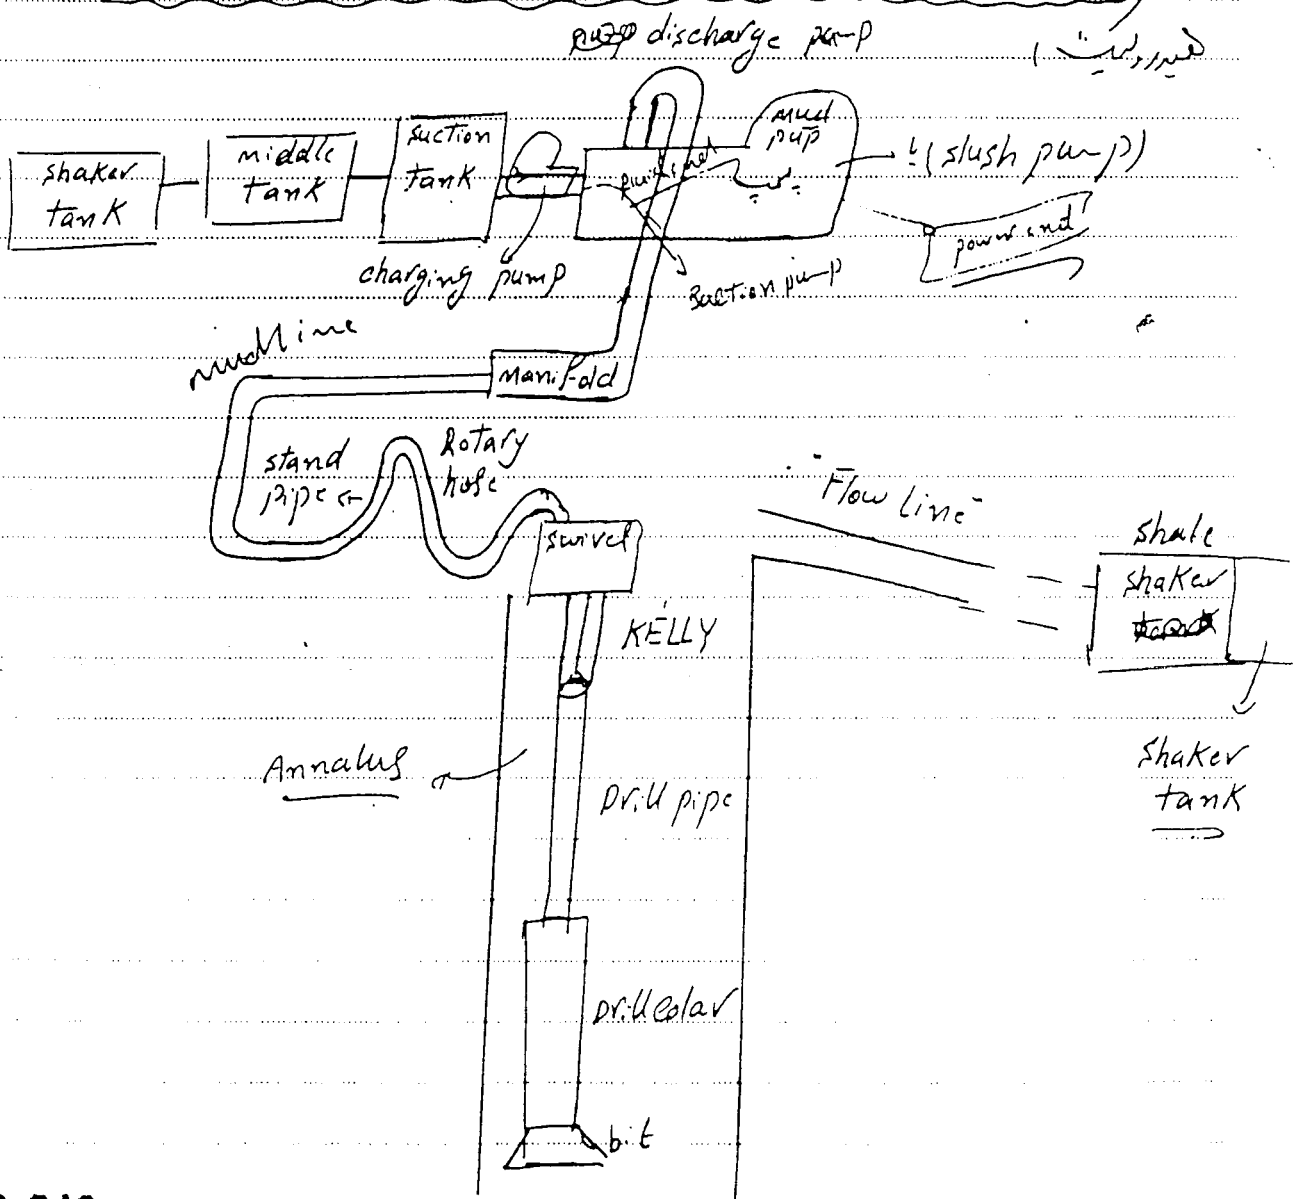 discharge pump
shaker
tank
middle
tank
suction
tank
mud
pup
پمپ
یا (slush pump)
power end
charging pump
Suction pump
mudline
manifold
stand
pipe
Rotary
hose
swivel
Flow Line
shale
shaker
KELLY
Shaker
tank
Annalus
Drill pipe
Drill colar
bit